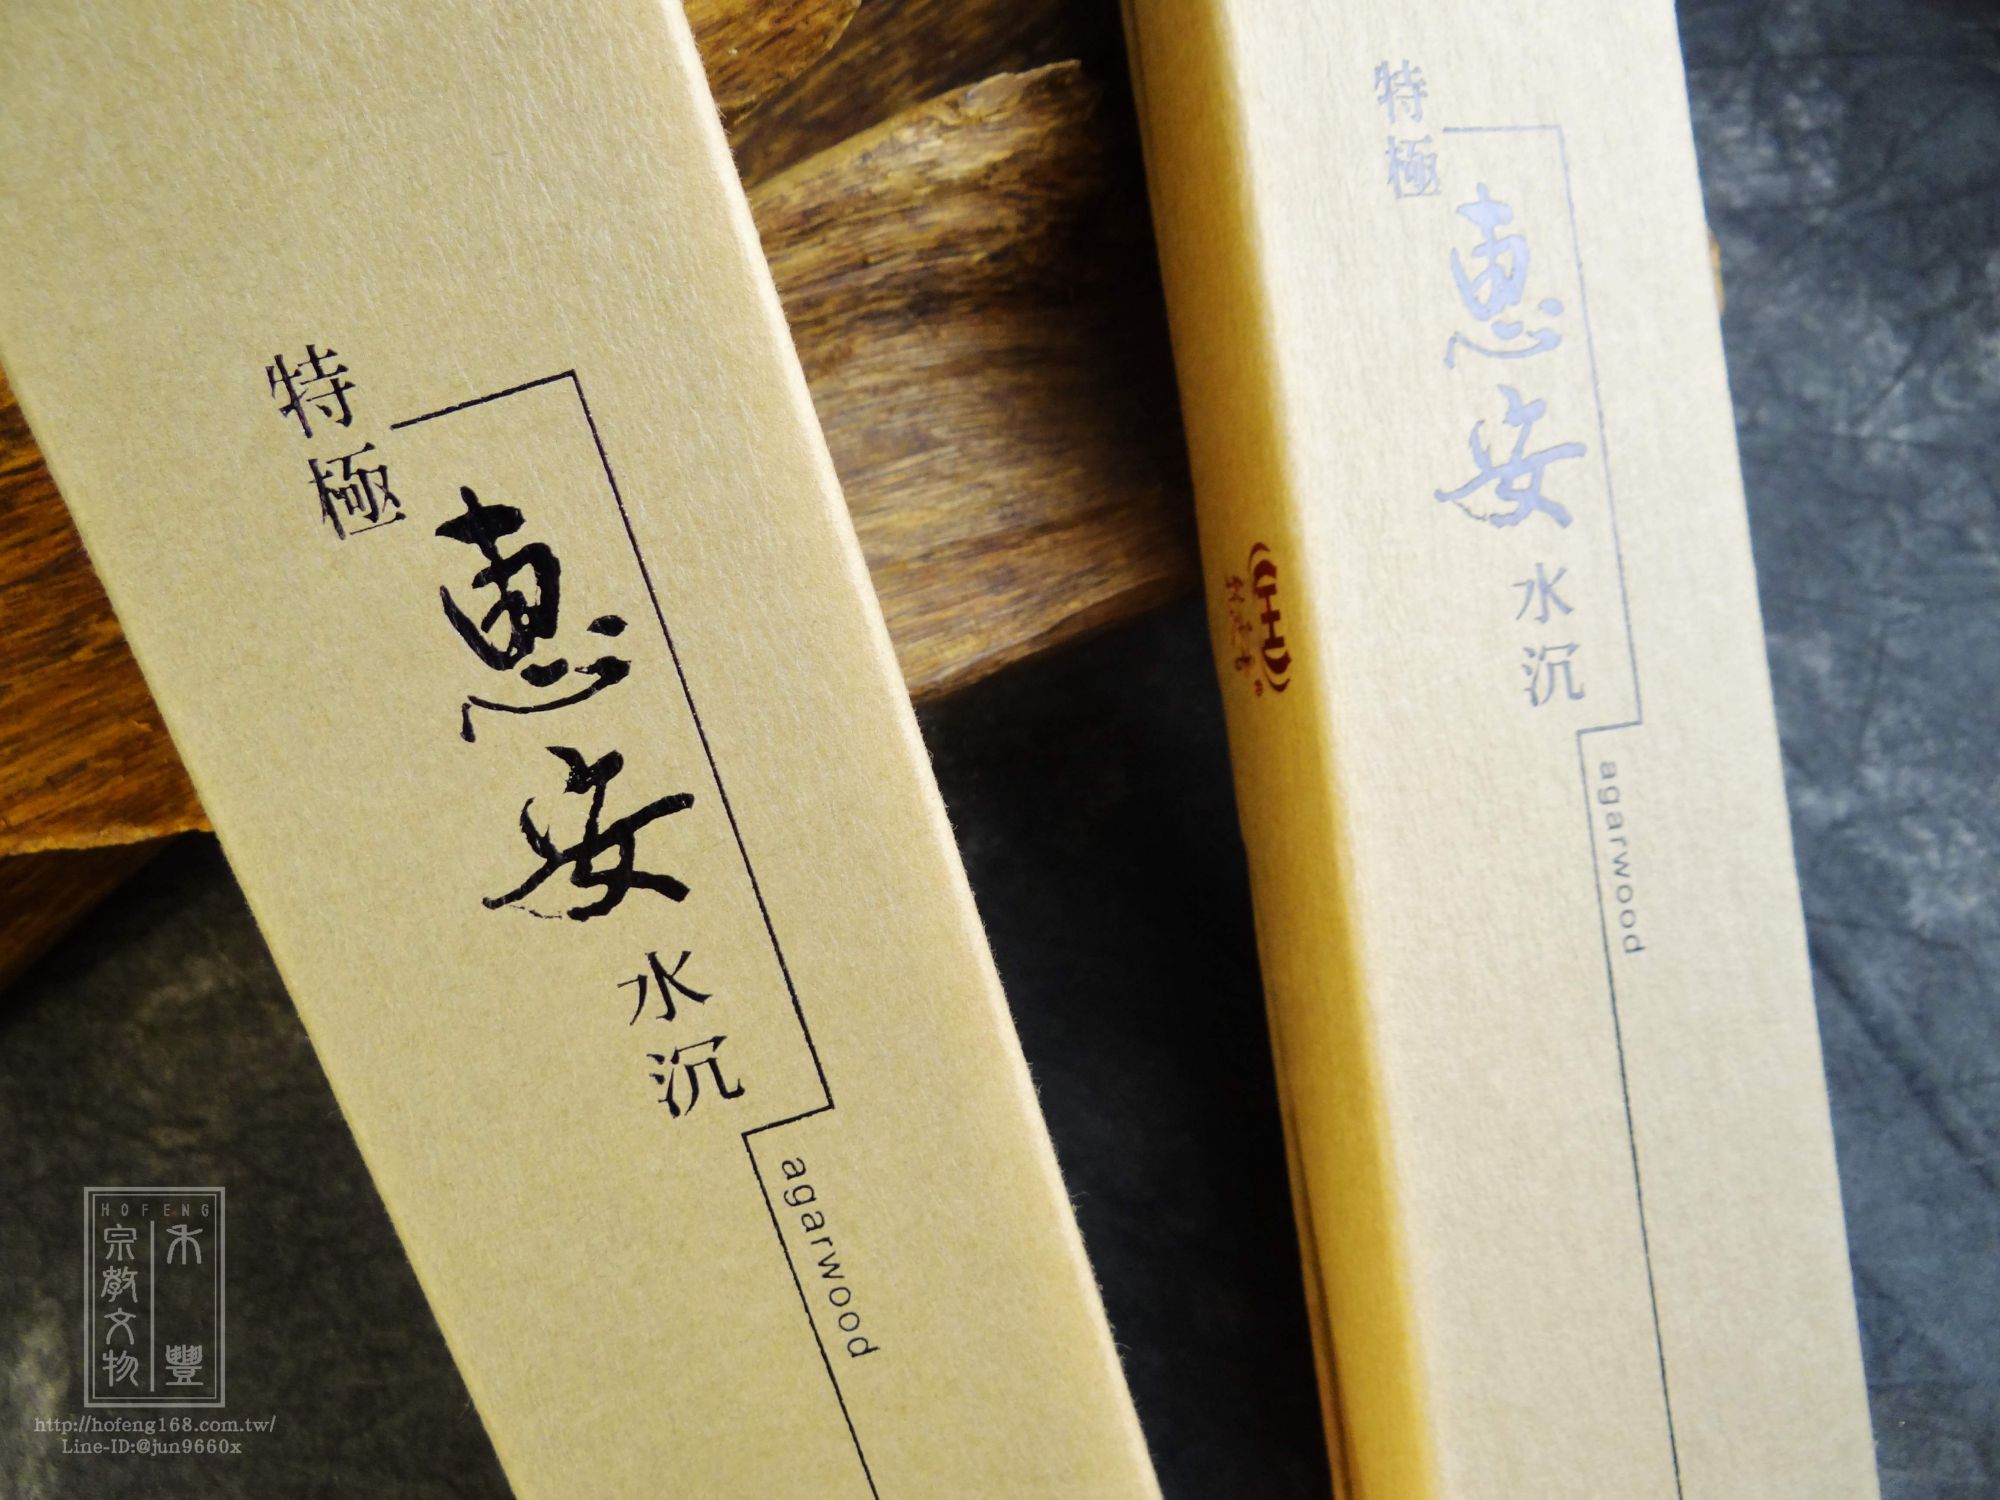 特極
惠安
水沉
agarwood
特極
惠安
水沉
agarwood
HOFENG
禾豐
宗教文物
http://hofeng168.com.tw/
Line-ID:@jun9660x